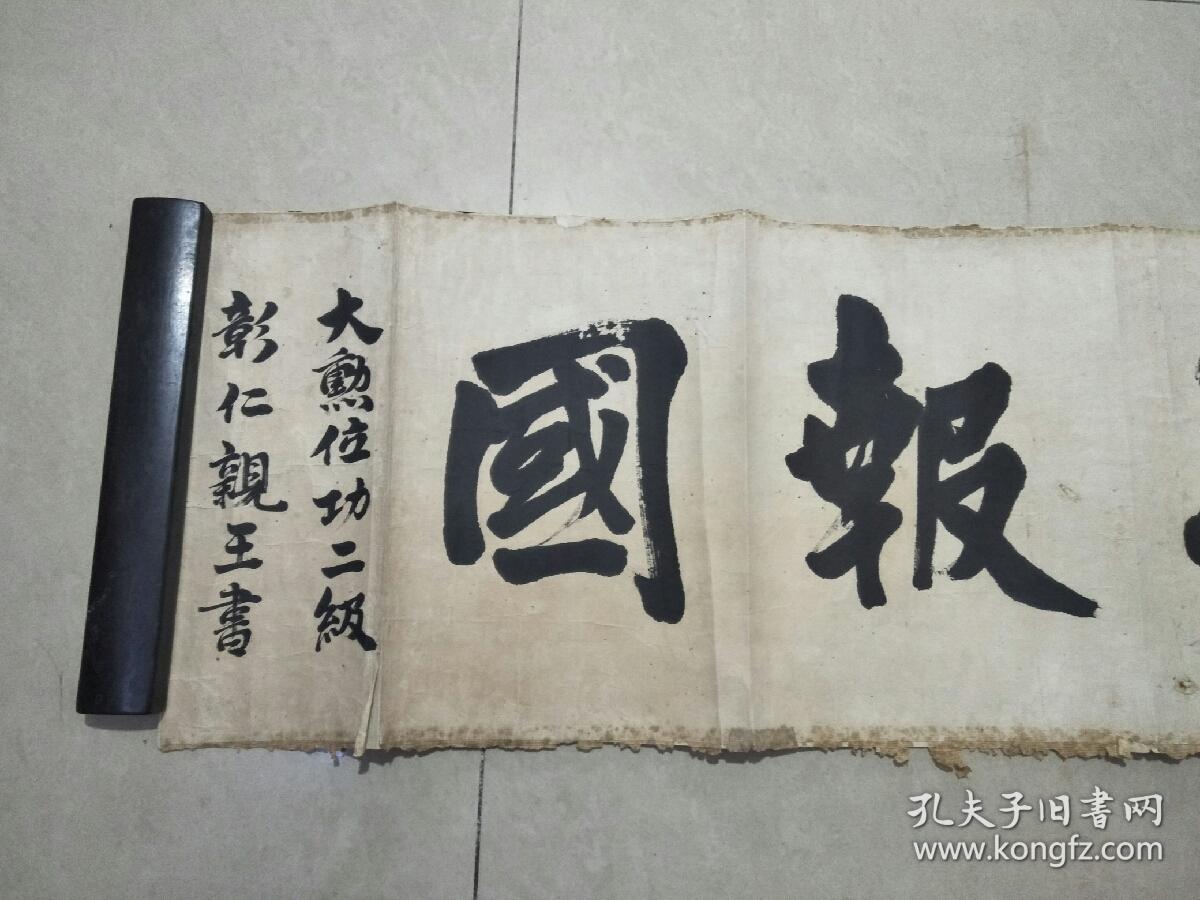 報國
大勲位功二級
彰仁親王書
孔夫子旧書网
www.kongfz.com